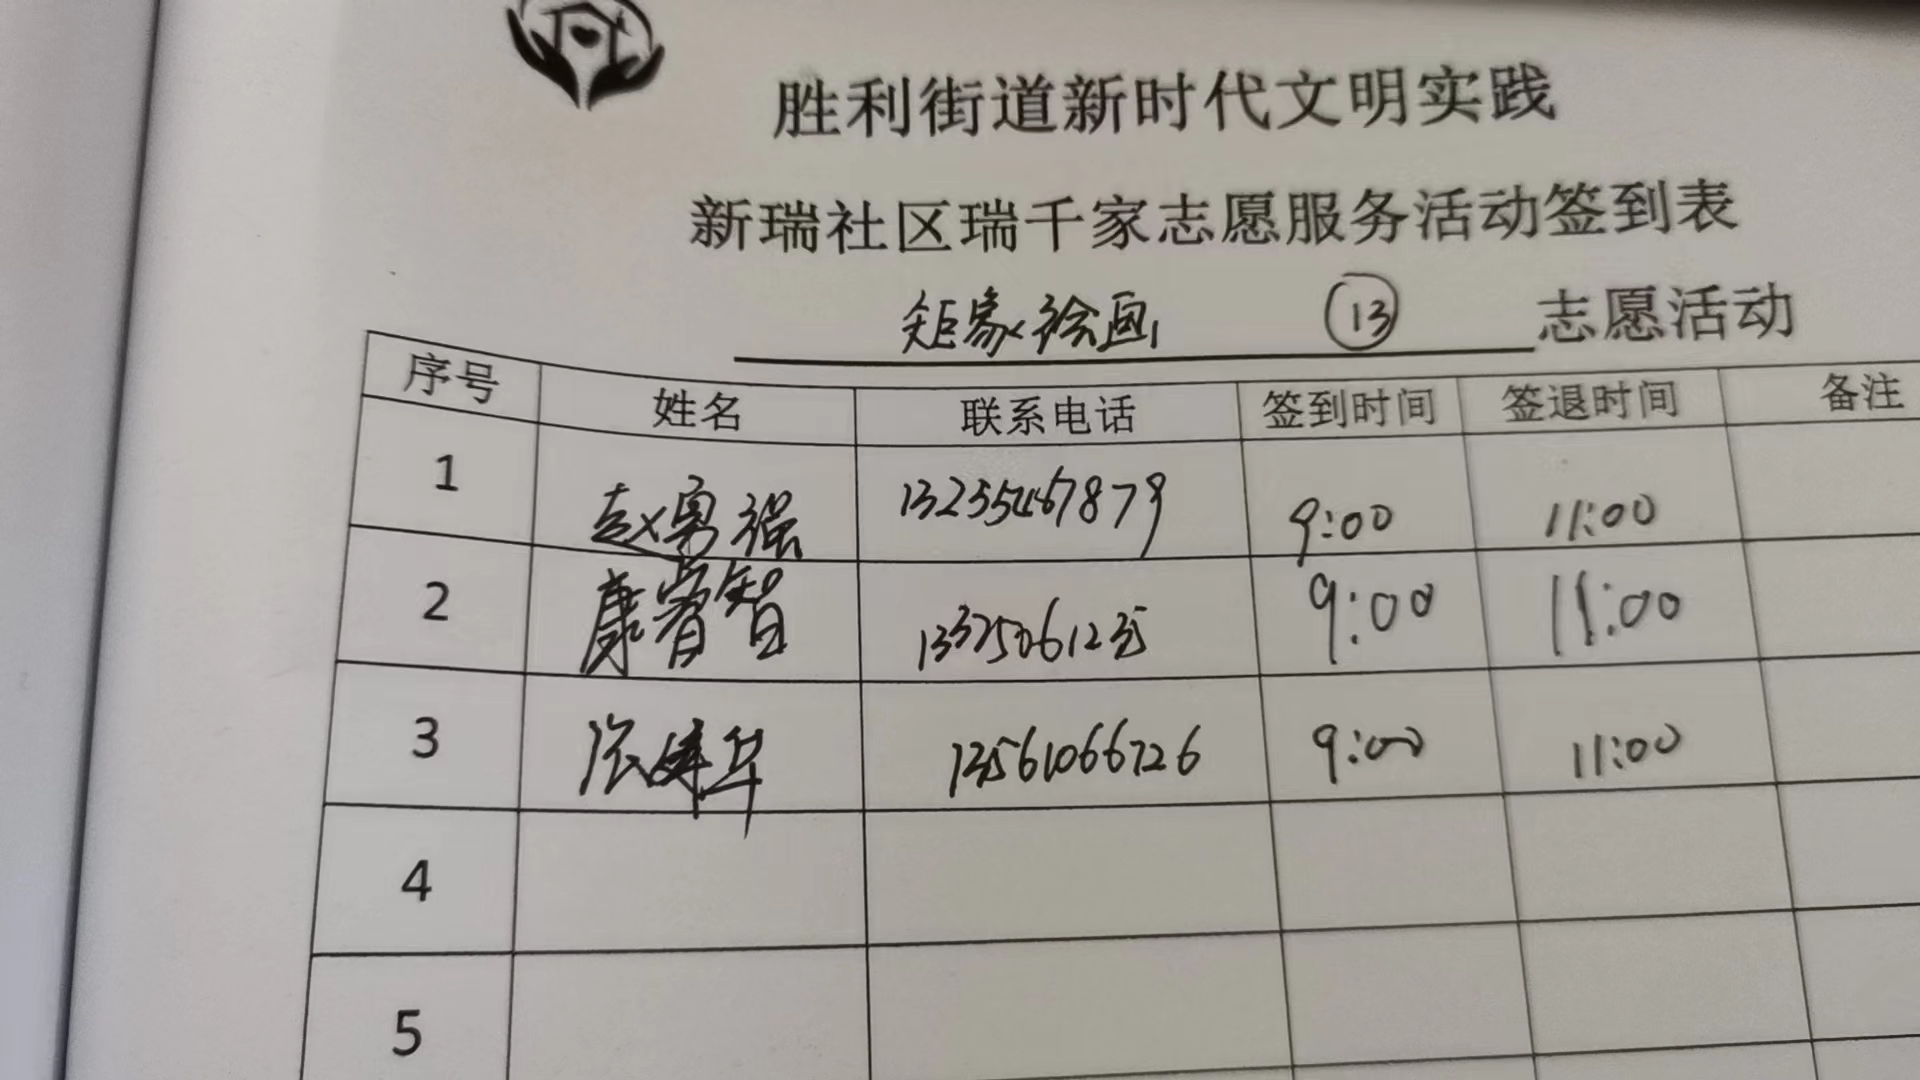 胜利街道新时代文明实践
新瑞社区瑞千家志愿服务活动签到表
矩象绘画 ⑬ 志愿活动
序号 姓名 联系电话 签到时间 签退时间 备注
1 赵勇强 13255467879 9:00 11:00
2 康睿智 9:00 11:00
3 13561066726 9:00 11:00
4
5